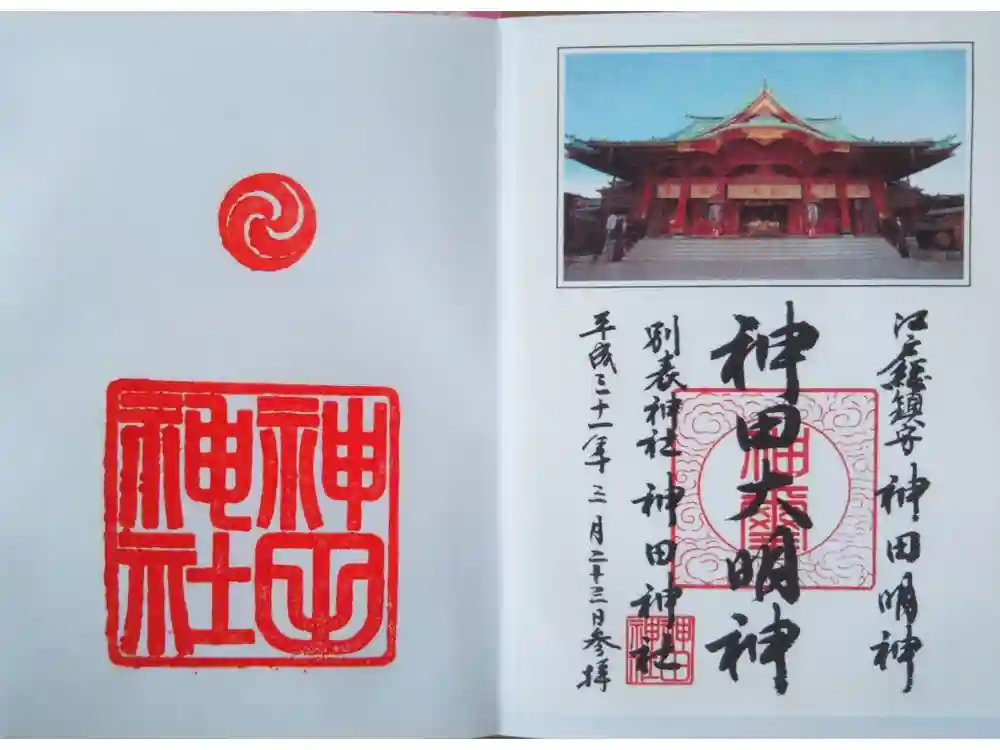 江戸総鎮守 神田明神
神田大明神
別表神社 神田神社
平成三十一年三月二十三日参拝
神田
神社
神田
神社